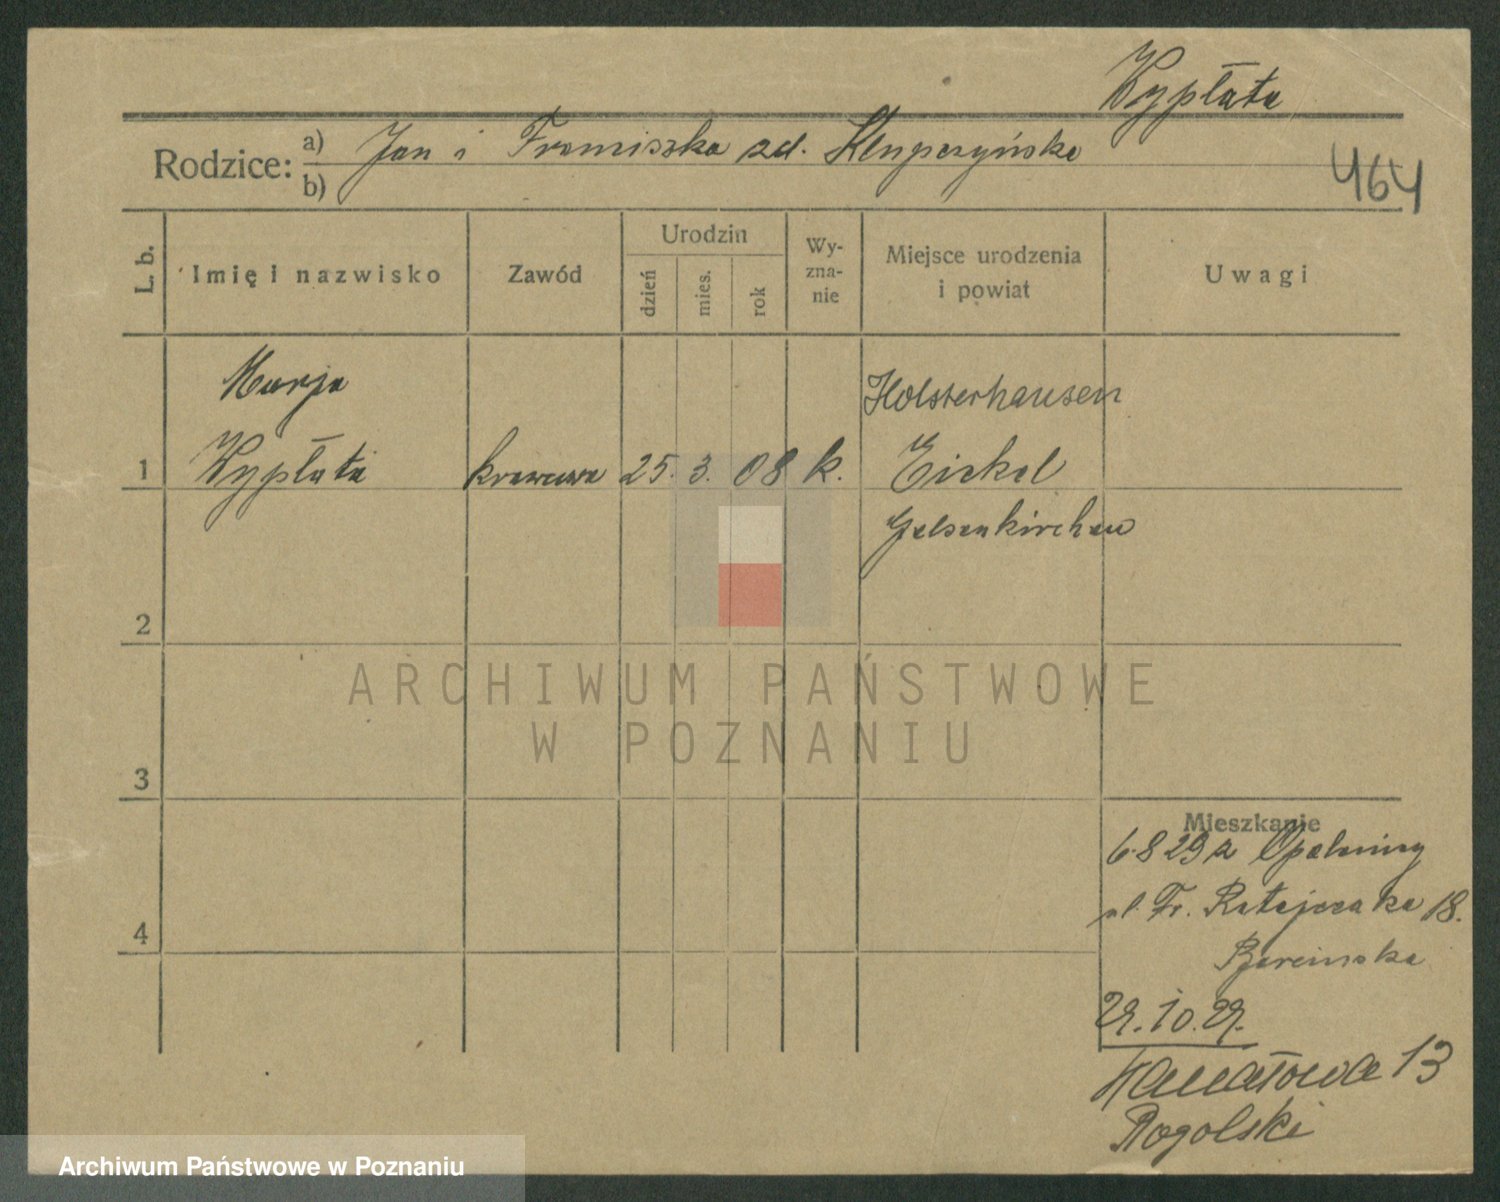 Wypłata
Rodzice: a) Jan i Franciszka zd. Klupczyńska
b)
464
L. b.
Imię i nazwisko
Zawód
Urodzin
dzień
mies.
rok
Wy-
zna-
nie
Miejsce urodzenia
i powiat
Uwagi
Marja
Holsterhausen
1 Wypłata krawcowa 25. 3. 08 k. Eickel
Gelsenkirchen
2
ARCHIWUM PAŃSTWOWE
W POZNANIU
3
Mieszkanie
6.8 29 z Opalenicy
ul. Fr. Ratajczaka 18.
4
Barcinska
29.10.29.
13
Rogolski
Archiwum Państwowe w Poznaniu